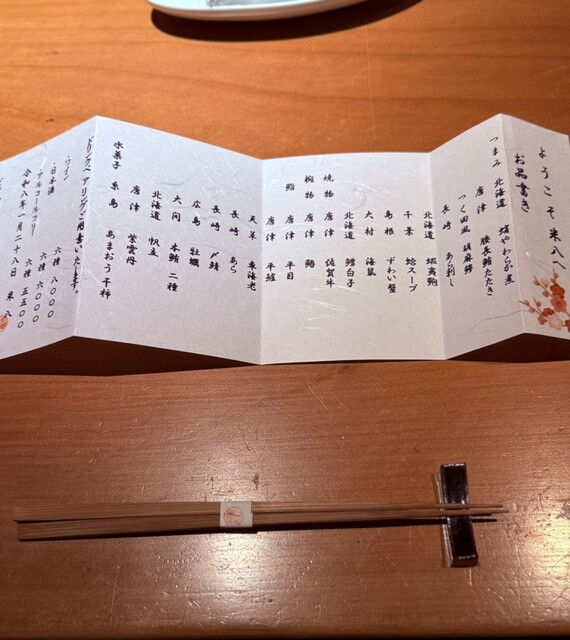 ようこそ 米八へ
お品書き
つまみ 北海道 蛸やわらか煮
唐津 腰長鮪たたき
つく田風 胡麻鯵
長崎 あら刺し
北海道 蝦夷鮑
千葉 蛤スープ
島根 ずわい蟹
大村 海鼠
北海道 鱈白子
焼物 唐津 佐賀牛
椀物 唐津 鯛
鮨 唐津 平目
唐津 平鱸
天草 車海老
長崎 あら
長崎 〆鯖
広島 牡蠣
大間 本鮪 二種
北海道 帆立
唐津 紫雲丹
水菓子 糸島 あまおう 干柿
ドリンクペアリングご用意いたします。
・ワイン 六種 八〇〇〇
・日本酒 六種 六〇〇〇
・アルコールフリー 六種 五五〇〇
令和八年一月二十八日 米八